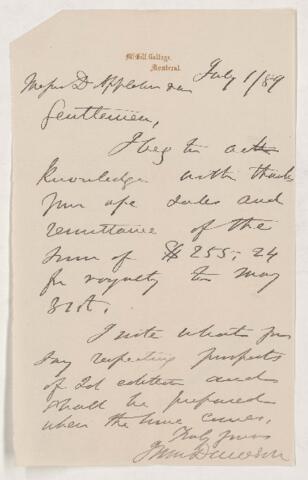 McGill College,
Montreal.
July 1/89
Messrs D Appleton &
Gentlemen,
I beg to ack
knowledge with thanks
your a/c sales and
remittance of the
sum of $255.24
for royalty to May
31st.
I note what you
say respecting prospects
of 2d edition and
shall be prepared
when the time comes.
Truly yours
J Wm Dawson